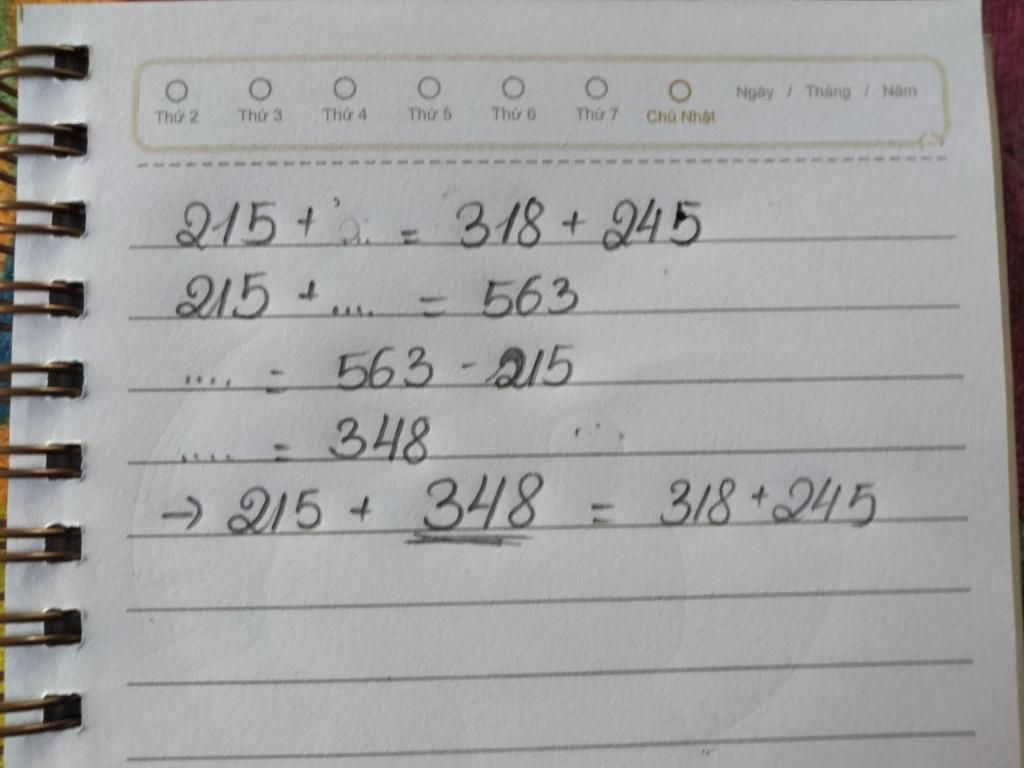 Thứ 2 Thứ 3 Thứ 4 Thứ 5 Thứ 6 Thứ 7 Chủ Nhật Ngày / Tháng / Năm
215 + .. = 318 + 245
215 + .... = 563
.... = 563 - 215
.... = 348
→ 215 + 348 = 318 + 245